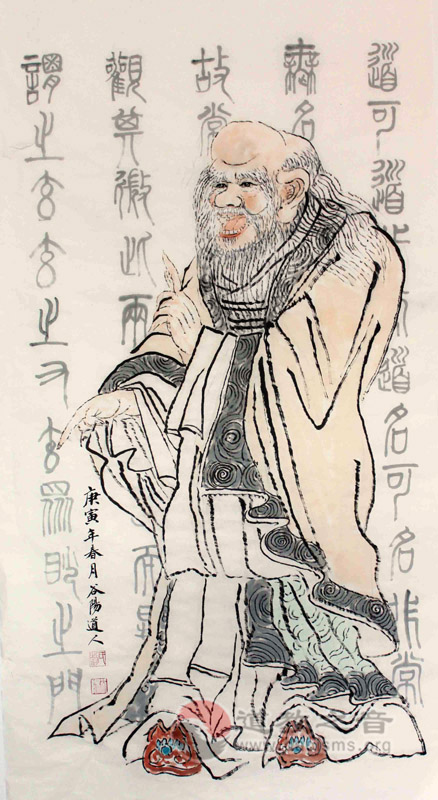 道可道非常道名可名非常
無名
故常
觀其徼此兩
而異
謂之玄玄之又玄眾妙之門
庚寅年春月谷陽道人
道教之音
www.daoisms.org